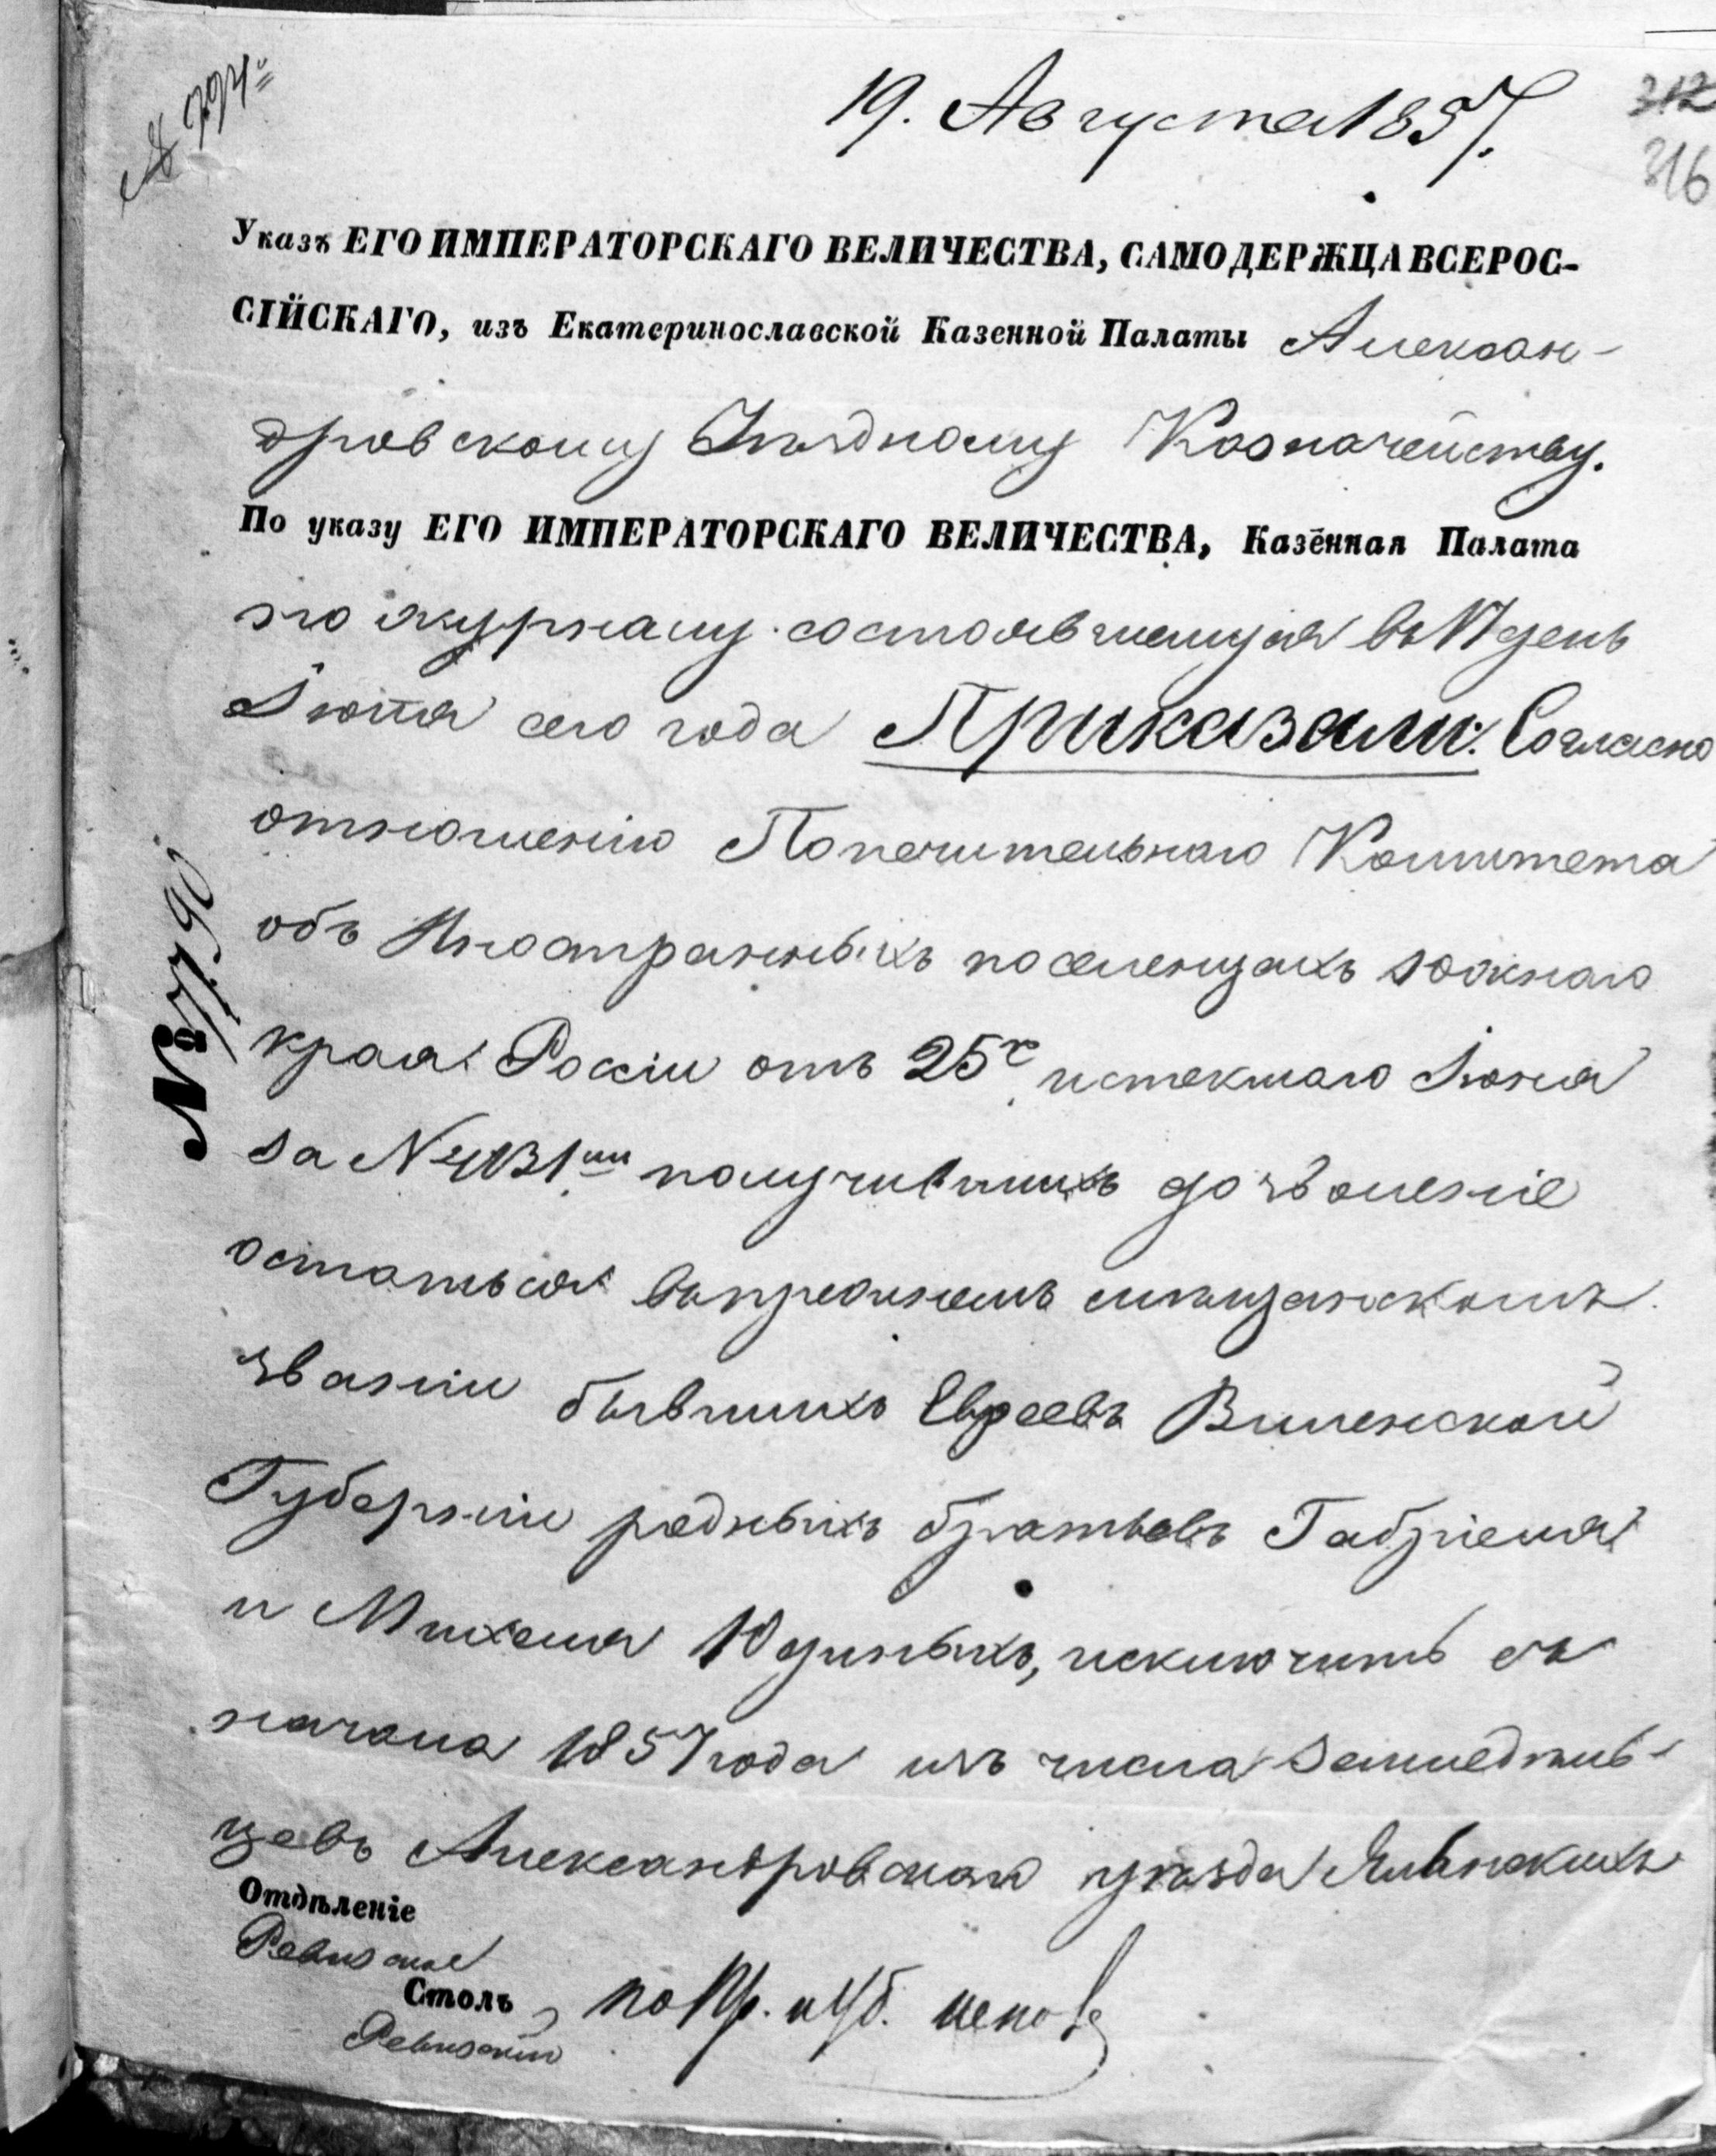 № 794
19. Августа 1857.
312
316
Указъ ЕГО ИМПЕРАТОРСКАГО ВЕЛИЧЕСТВА, САМОДЕРЖЦА ВСЕРОС-
СІЙСКАГО, изъ Екатеринославской Казенной Палаты Алексан-
дровскому Уѣздному Казначейству.
По указу ЕГО ИМПЕРАТОРСКАГО ВЕЛИЧЕСТВА, Казённая Палата
по журналу состоявшемуся въ 17 день
Іюля сего года Приказали: Согласно
отношенію Попечительнаго Комитета
объ Иностранныхъ поселенцахъ южнаго
края Россіи отъ 25 истекшаго Іюня
за № 4131 получившихъ дозволеніе
остаться въ прежнемъ мѣщанскомъ
званіи бывшихъ Евреевъ Виленской
Губерніи родныхъ братьевъ Габріеля
и Михеля Юдиныхъ, исключить съ
начала 1857 года изъ числа земледѣль-
цевъ Александровскаго уѣзда
№ 7790
Отдѣленіе
Ревизское
Столъ
Ревизскій